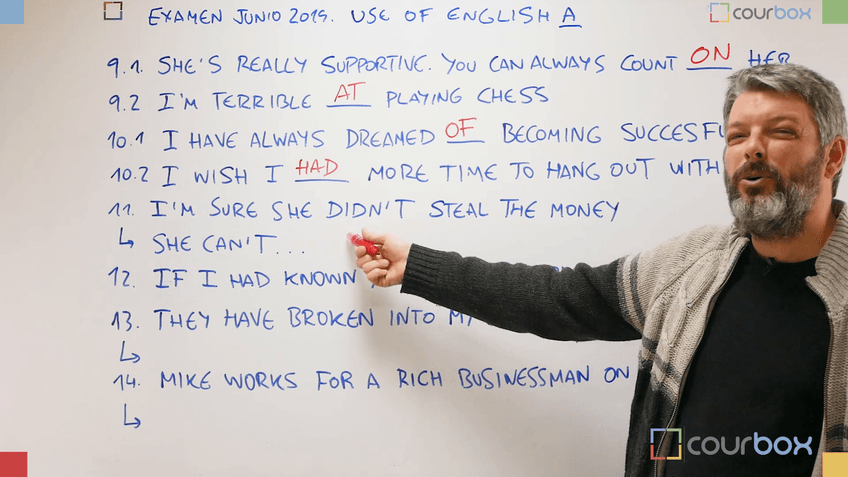 EXAMEN JUNIO 2019. USE OF ENGLISH A
courbox
9.1. SHE'S REALLY SUPPORTIVE. YOU CAN ALWAYS COUNT ON HER
9.2 I'M TERRIBLE AT PLAYING CHESS
10.1 I HAVE ALWAYS DREAMED OF BECOMING
10.2 I WISH I HAD MORE TIME TO HANG OUT WITH
11. I'M SURE SHE DIDN'T STEAL THE MONEY
↳ SHE CAN'T...
12. IF I HAD KNOWN
13. THEY HAVE BROKEN INTO
↳
14. MIKE WORKS FOR A RICH BUSINESSMAN ON
↳
courbox